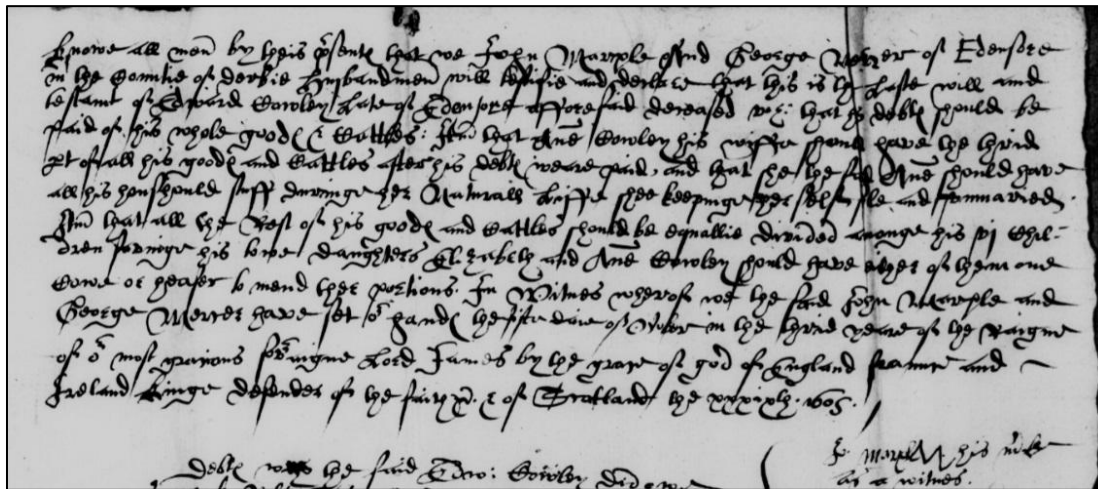 Knowe all men by theis p'sentes that we John Marple And George Mercer of Edensore
in the Countie of derbie husbandmen will testifie and declare that this is the laste will and
testamt of Edward Cowley late of Edensore afforesaid deceased vz: that his debtes should be
paid of his whole goodes & Cattles: Itm that Ane Cowley his wiffe should have the third
pt of all his goodes and Cattles after his debtes weare paid, and that she the said Ane should have
all his houshould stuff duringe her Naturall Liffe shee keepinge her selfe sole and unmaried.
Itm that all the Rest of his goodes and Cattles should be equallie divided amonge his vj Chil-
dren savinge his towe daughters Elizabeth and Ane Cowley should have either of them one
Cowe or heafer to mend ther portions. In Witnes wherof we the said John Marple and
George Mercer have set or handes the daie of in the third yeare of the raigne
of or most gracious soveraigne Lord James by the grace of god of England fraunce and
Ireland kinge defender of the faith &c. & of Scotland the xxxixth. 1605.
Jo Marple his mke
as a witnes.
debtes the said Edw: Cowley did owe